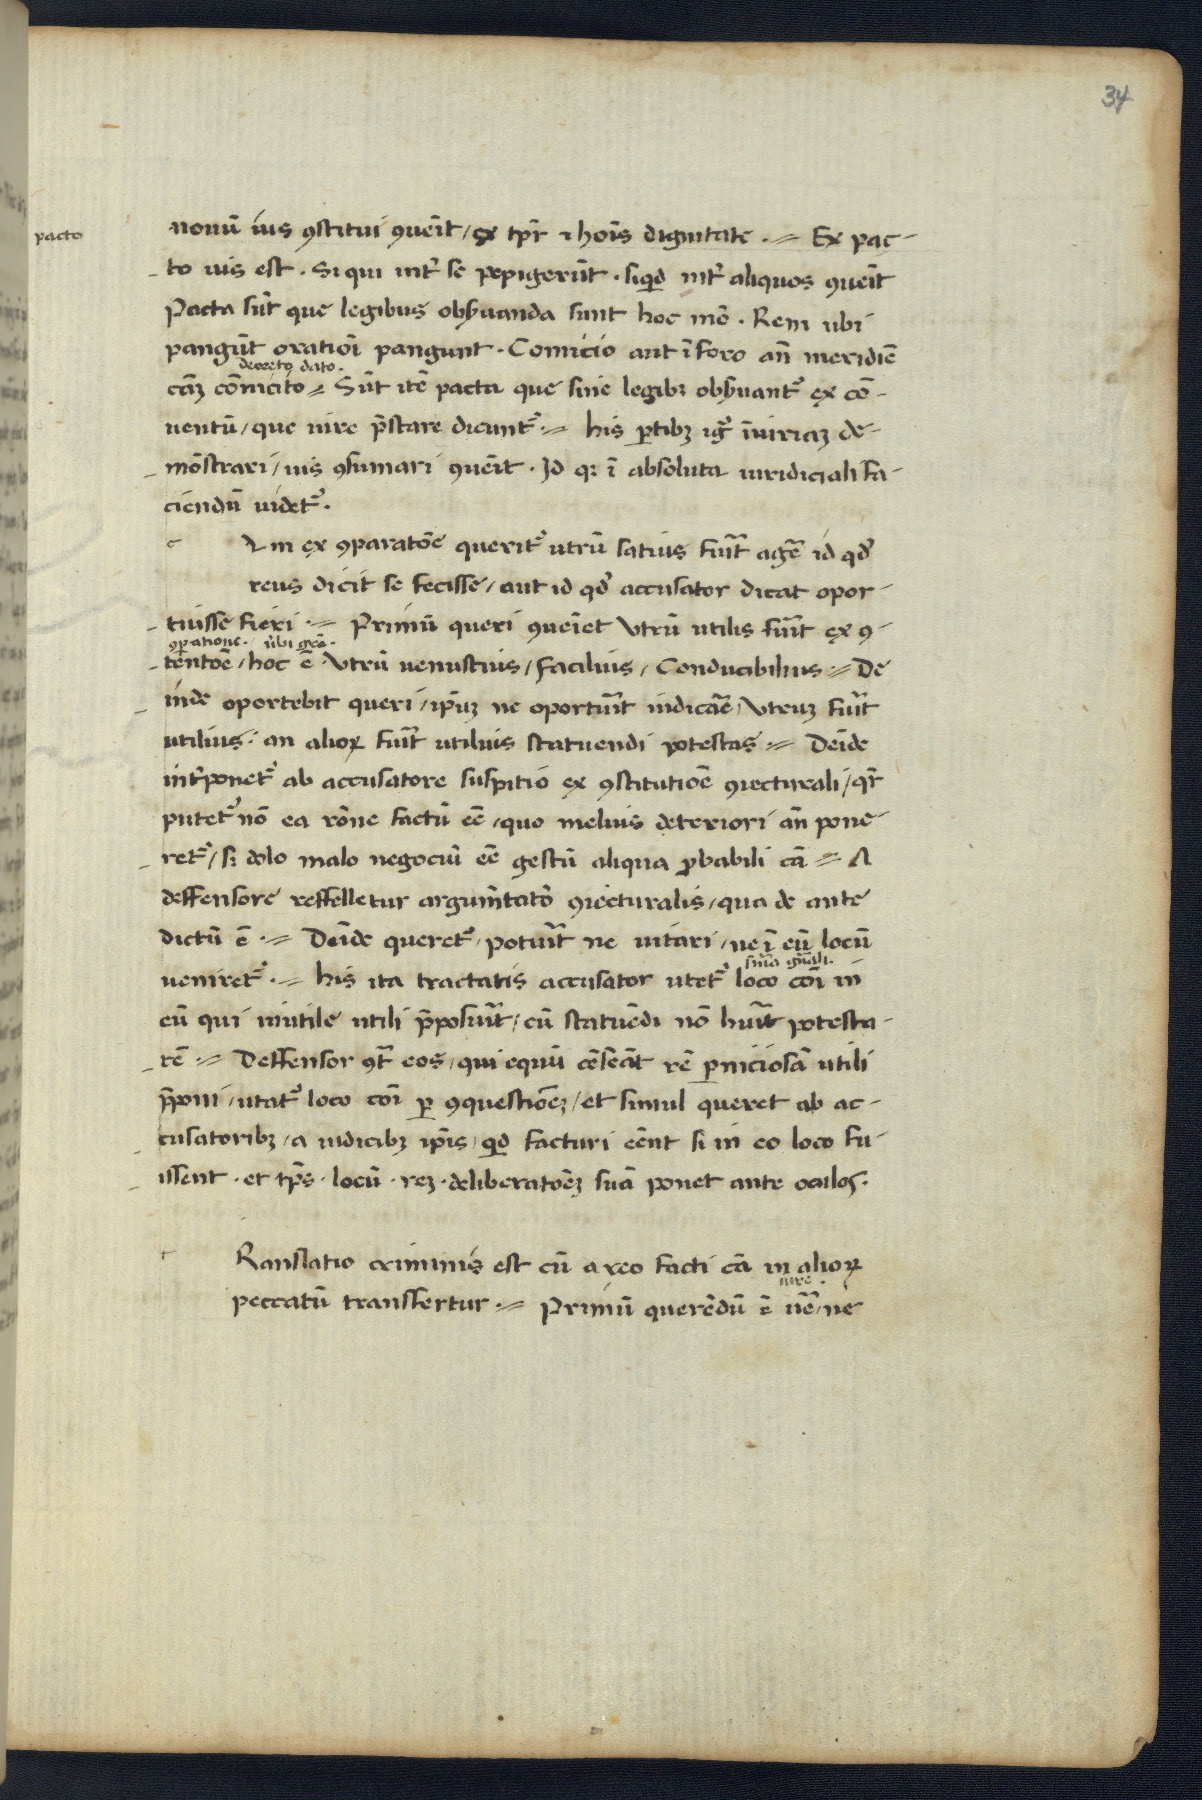 34
pacto
nouū ius ꝯstitui ꝯuēit / ex tp̄r ⁊ hoīs dignitate . Ex pac-
to ius est . Si qui int̄ se pepigerūt . siqd int̄ aliquos ꝯuēit
Pacta sūt que legibus obs̄uanda sunt hoc mō . Rem ubi
pangūt oratiōi pangunt . Comicio aut ī foro an̄ meridiē
decreto dato .
cāꝫ cōnicito Sūt itē pacta que sine legibꝫ obs̄uant᷑ ex cō-
uentū / que iure p̄stare dicunt᷑ his ꝑtibꝫ ig᷑ īiuriaꝫ de-
mōstrari / uis ꝯfumari ꝯuēit . Id qꝫ ī absoluta iuridiciali fa-
ciendū uidet᷑ .
c Vm ex ꝯparatōe querit᷑ utrū satius fuīt agē id qd̄
reus dicit se fecisse / aut id qd̄ accusator dicat opor-
tuisse fieri Primū queri ꝯueīet Vtrū utilis fuīt ex ꝯ-
ꝯꝑatione . ūbi grā .
tentōe / hoc ē Vtrū uenustius / facilius / Conducibilius De
inde oportebit queri / ip̄uꝫ ne oportuīt iudicāē / Vtruꝫ fuīt
utilius . an alioꝝ fuīt utilius statuendi potestas Deīde
int̄ponet᷑ ab accusatore suspitio ex ꝯstitutiōe ꝯiectureali / qr̄
putet᷑ nō ea rōne factū eē / quo melius deteriori an̄ pone-
ret᷑ / sꝫ dolo malo negociū eē gestū aliqua ꝓbabili cā A
deffensore reffelletur argum̄tatō ꝯiecturalis / qua de ante
dictū ē . Deīde queret᷑ / potuīt ne uitari / ne ī eū locū
sniā gn̄ali .
uenīret᷑ . his ita tractatis accusator utet᷑ loco cōi in
eū qui inutile utili p̄posuīt / cū statuēdi nō huīt potesta-
tē Deffensor ꝯt̄ eos / qui equū cēseāt rē ꝑniciosā utili
p̄poni / utat᷑ loco cōi ꝑ ꝯquestiōeꝫ / et simul queret ab ac-
cusatoribꝫ / a iudicibꝫ ip̄is / qd facturi eēnt si in eo loco fu-
issent . et tp̄s . locū . reꝫ . deliberatōeꝫ suā ponet ante oculos .
t Ranslatio criminis est cū a reo facti cā in alioꝝ
iure .
peccatū transfertur . Primū querēdū ē uē / ne